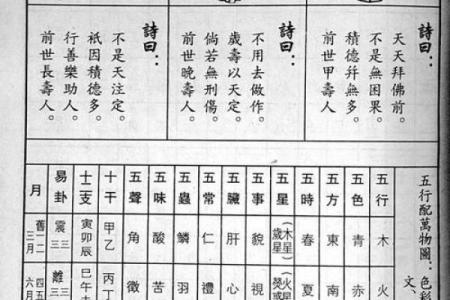 詩曰：
天天拜佛前。
不是無因果。
積德幷無多。
前世甲壽人
詩曰：
不用去做作。
歲壽以天定。
倘若無刑傷。
前世晚壽人。
詩曰：
不是天注定。
祇因積德多。
行善樂助人。
前世長壽人。
五行配萬物圖：色彩
文、
五行 木 火
五色 青 赤
五方 東 南
五時 春 夏
五星 (木星)歲星 (火星)熒惑
五事 貌 視
五臟 肝 心
五常 仁 禮
五蟲 鱗 羽
五味 酸 苦
五聲 角 徵
十干 甲乙 丙丁
十二支 寅卯辰 巳午
易卦 震☳ 離☲
月 舊 三月 四五六月